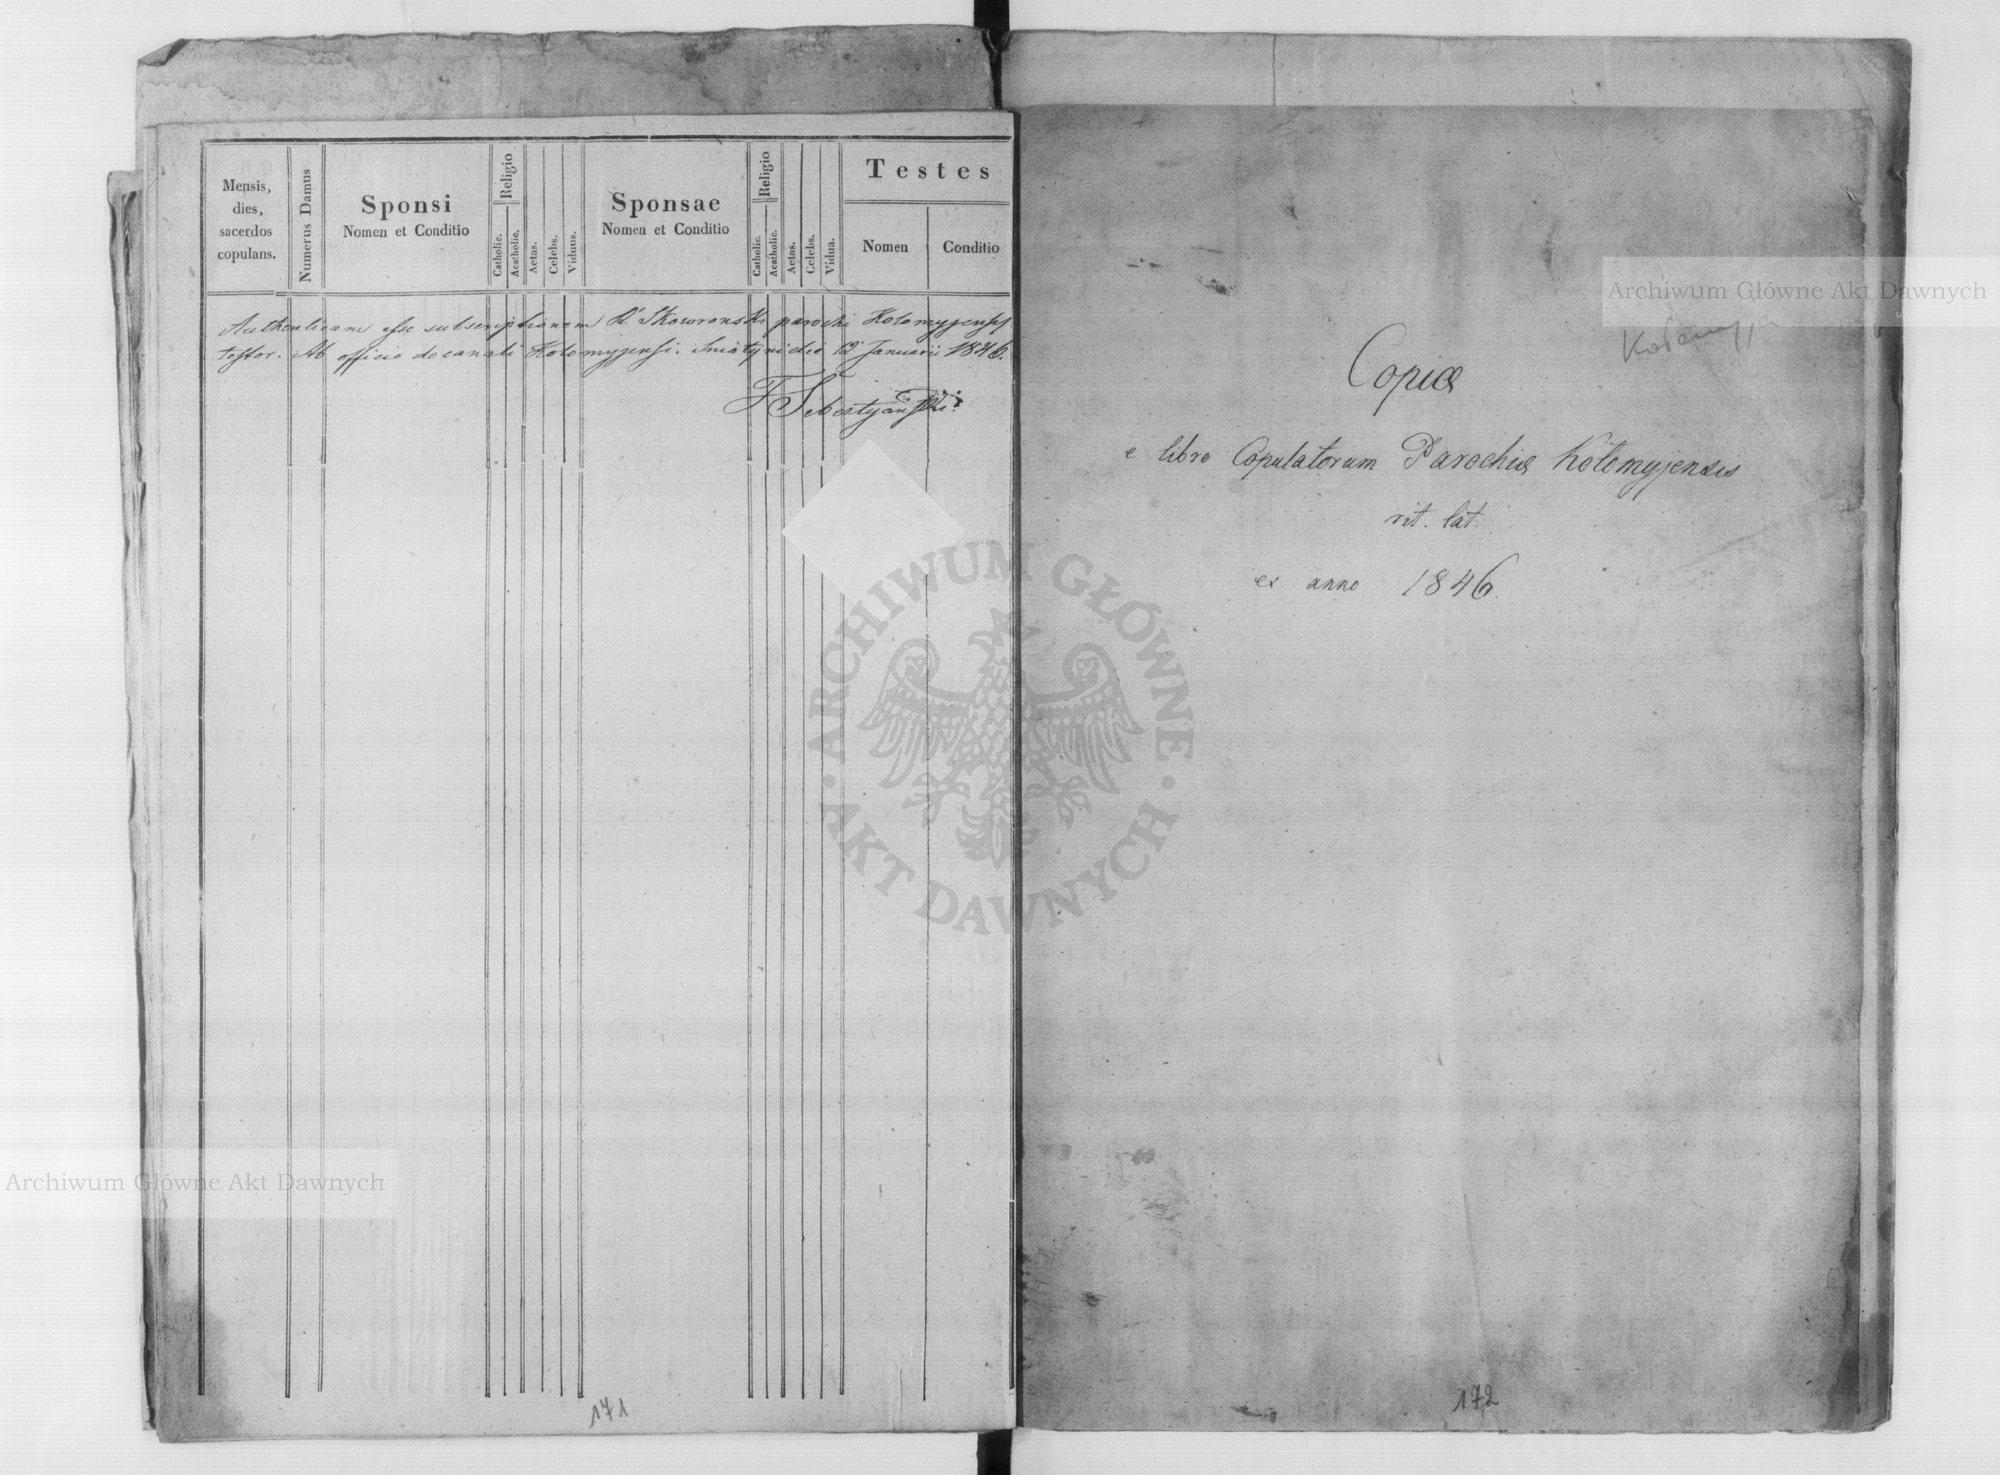 Mensis,
dies,
sacerdos
copulans.
Numerus Damus
Sponsi
Nomen et Conditio
Religio
Catholic.
Acatholic.
Aetas.
Celebs.
Viduus.
Sponsae
Nomen et Conditio
Religio
Catholic.
Acatholic.
Aetas.
Celebs.
Vidua.
Testes
Nomen
Conditio
Authenticam esse subscriptionem Rd Skowronski parochi Kolomyjensis
testor. Ab officio decanali Kolomyjensi. Sniatyni die 12 Januarii 1846.
171
Kołomyja
Copiae
e libro Copulatorum Parochiae Kolomyjensis
rit. lat.
ex anno 1846.
172
Archiwum Główne Akt Dawnych
Archiwum Główne Akt Dawnych
ARCHIWUM GŁÓWNE
AKT DAWNYCH